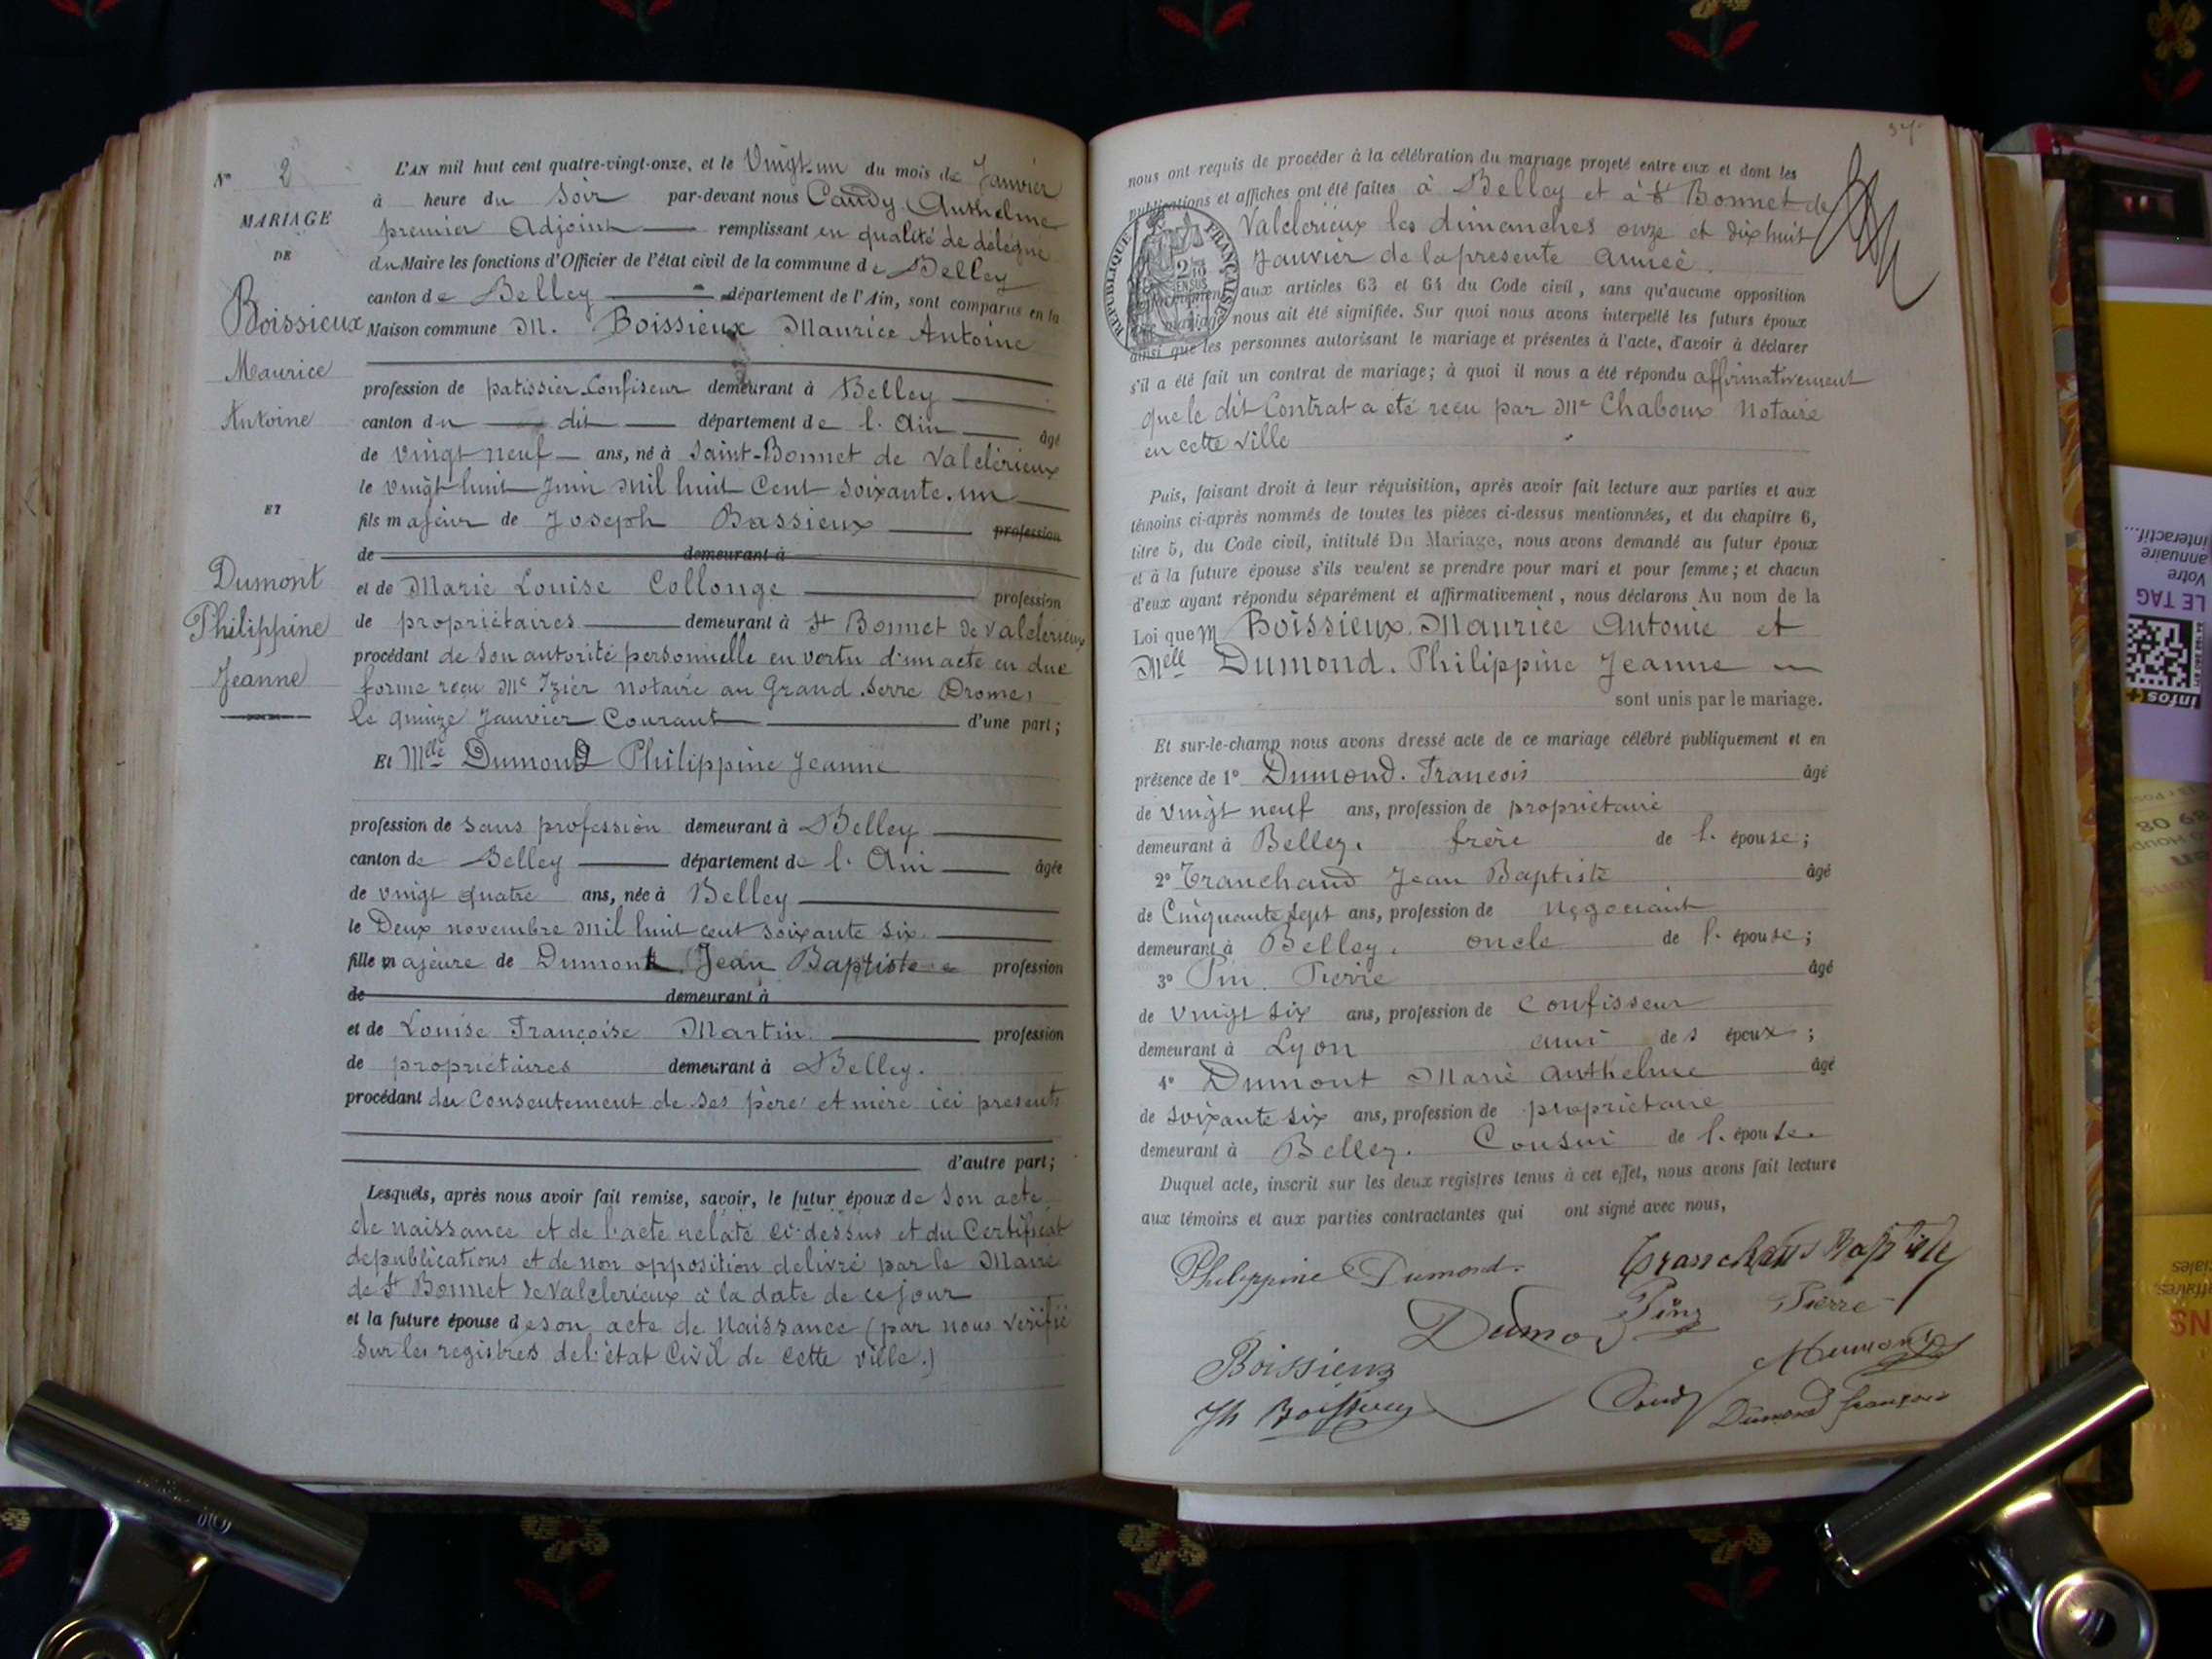 N° 2
MARIAGE
DE
Boissieux
Maurice
Antoine
ET
Dumont
Philippine
Jeanne
L'AN mil huit cent quatre-vingt-onze, et le Vingt-un du mois de Janvier
à heure du Soir par-devant nous Candy Anthelme
premier Adjoint remplissant en qualité de délégué
du Maire les fonctions d'Officier de l'état civil de la commune de Belley
canton de Belley département de l'Ain, sont comparus en la
Maison commune M. Boissieux Maurice Antoine
profession de patissier-Confiseur demeurant à Belley
canton du dit département de l'Ain âgé
de Vingt neuf ans, né à Saint-Bonnet de Valclérieux
le vingt huit Juin Mil huit Cent Soixante-un
fils majeur de Joseph Bassieux profession
de demeurant à
et de Marie Louise Collonge profession
de propriétaires demeurant à St Bonnet de Valclérieux
procédant de Son autorité personnelle en vertu d'un acte en due
forme reçu Me Izier notaire au Grand Serre (Drome)
le quinze Janvier Courant d'une part;
Et Melle Dumond Philippine Jeanne
profession de Sans profession demeurant à Belley
canton de Belley département de l'Ain âgée
de vingt quatre ans, née à Belley
le Deux novembre Mil huit cent soixante six
fille majeure de Dumont Jean Baptiste profession
de demeurant à
et de Louise Françoise Martin profession
de propriétaires demeurant à Belley.
procédant du Consentement de ses père et mère ici présents
d'autre part;
Lesquels, après nous avoir fait remise, savoir, le futur époux de Son acte
de naissance et de l'acte relaté ci-dessus et du Certificat
de publications et de non opposition delivré par le Maire
de St Bonnet de Valclerieux à la date de ce jour
et la future épouse de son acte de Naissance (par nous vérifié
Sur les registres de l'état Civil de cette ville.)
37
nous ont requis de procéder à la célébration du mariage projeté entre eux et dont les
publications et affiches ont été faites à Belley et à St Bonnet de
Valclerieux les dimanches onze et dix huit
Janvier de la présente année.
aux articles 63 et 64 du Code civil, sans qu'aucune opposition
mariage nous ait été signifiée. Sur quoi nous avons interpellé les futurs époux
ainsi que les personnes autorisant le mariage et présentes à l'acte, d'avoir à déclarer
s'il a été fait un contrat de mariage; à quoi il nous a été répondu affirmativement
que le dit Contrat a été reçu par Me Chaboux Notaire
en cette ville
RÉPUBLIQUE FRANÇAISE
Puis, faisant droit à leur réquisition, après avoir fait lecture aux parties et aux
témoins ci-après nommés de toutes les pièces ci-dessus mentionnées, et du chapitre 6,
titre 5, du Code civil, intitulé Du Mariage, nous avons demandé au futur époux
et à la future épouse s'ils veulent se prendre pour mari et pour femme; et chacun
d'eux ayant répondu séparément et affirmativement, nous déclarons Au nom de la
Loi que M Boissieux Maurice Antonie et
Melle Dumond. Philippine Jeanne
sont unis par le mariage.
Et sur-le-champ nous avons dressé acte de ce mariage célébré publiquement et en
présence de 1° Dumond. Francois âgé
de vingt neuf ans, profession de propriétaire
demeurant à Belley. frère de l'épouse;
2° Tranchand Jean Baptiste âgé
de Cinquante sept ans, profession de Négociant
demeurant à Belley. oncle de l'épouse;
3° Pin. Pierre âgé
de vingt six ans, profession de Confisseur
demeurant à Lyon ami des époux;
4° Dumont Marie Anthelme âgé
de soixante six ans, profession de propriétaire
demeurant à Belley. Cousin de l'épouse.
Duquel acte, inscrit sur les deux registres tenus à cet effet, nous avons fait lecture
aux témoins et aux parties contractantes qui ont signé avec nous,
Philippine Dumond.
Tranchand Baptiste
Pin Pierre
Boissieux
Jh Boissieux
Candy
Dumond François
Votre
annuaire
interactif...
LE TAG
infos+